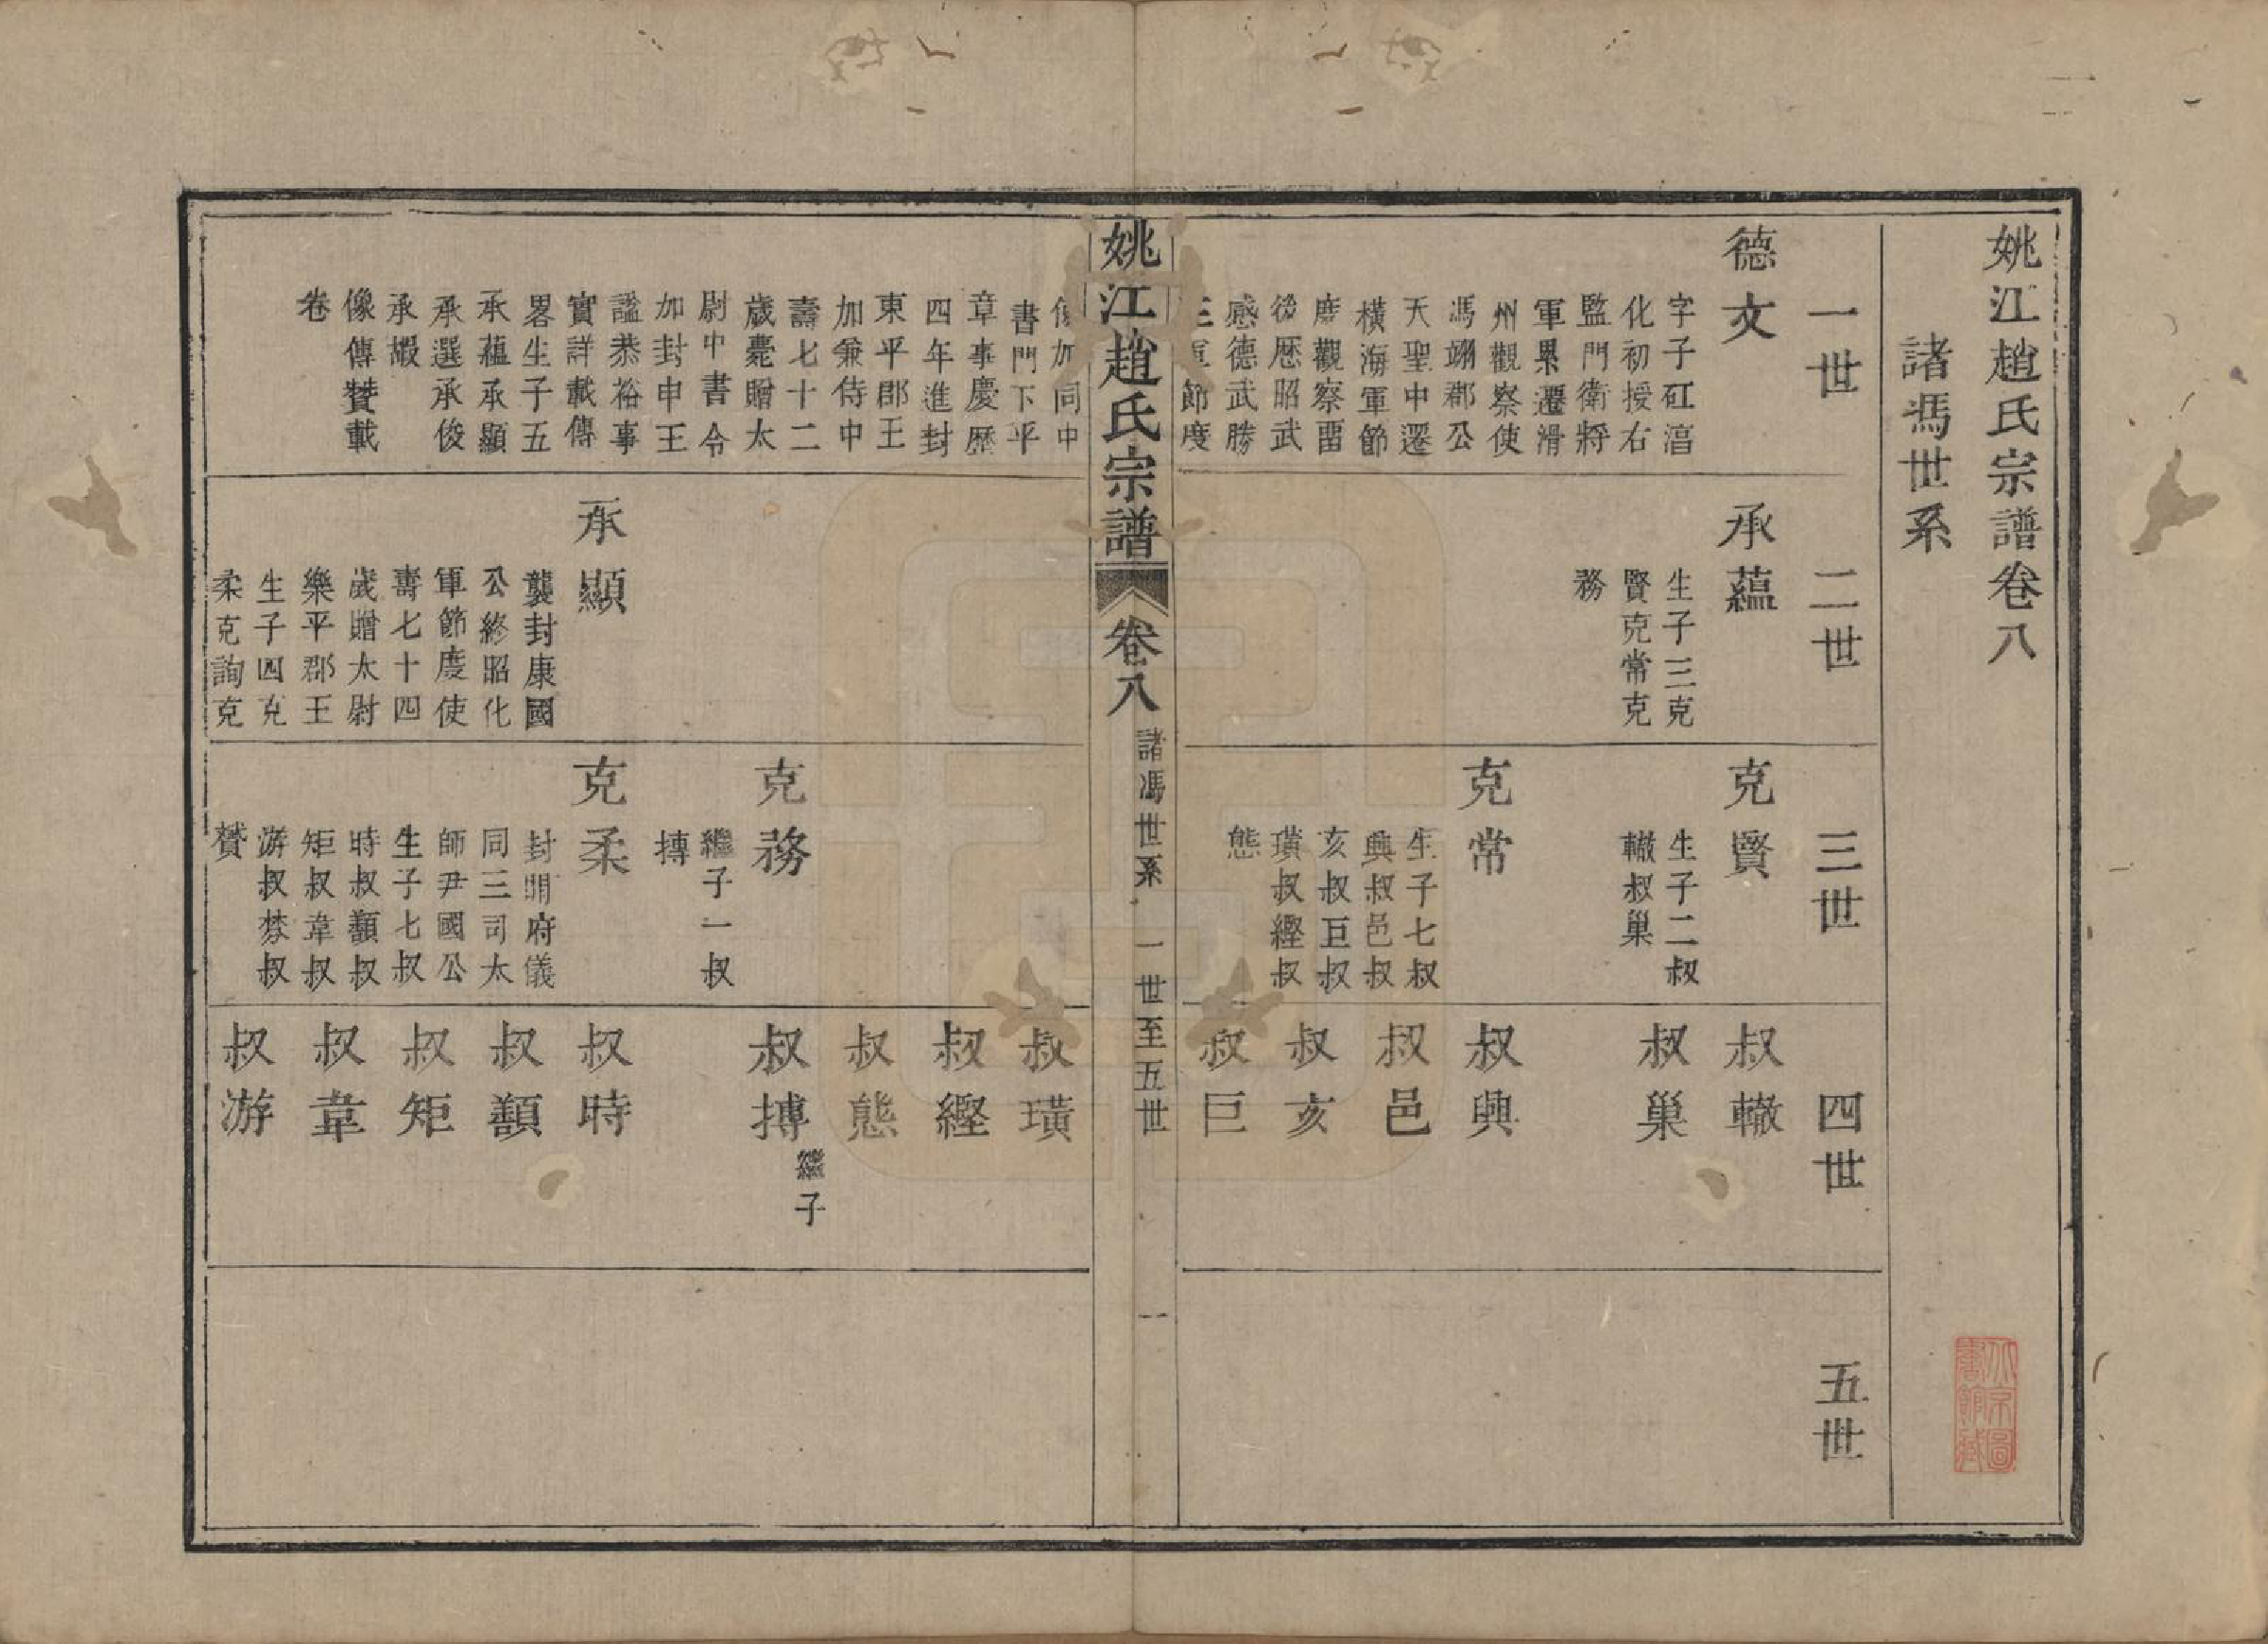 姚江趙氏宗譜卷八
諸馮世系
一世
二世
三世
四世
五世
德文
字子矼淯
化初授右
監門衛將
軍累遷滑
州觀察使
馮翊郡公
天聖中遷
橫海軍節
度觀察畱
後歷昭武
感德武勝
三軍節度
承蘊
生子三克
賢克常克
務
克賢
生子二叔
轍叔巢
克常
生子七叔
興叔邑叔
亥叔巨叔
璜叔經叔
態
叔轍
叔巢
叔興
叔邑
叔亥
叔巨
姚江趙氏宗譜
卷八
諸馮世系
一世至五世
一
加同中
書門下平
章事慶歷
四年進封
東平郡王
加兼侍中
壽七十二
歲薨贈太
尉中書令
加封申王
謚恭裕事
實詳載傳
畧生子五
承蘊承顯
承選承俊
承嘏
像傳贊載
卷
承顯
襲封康國
公終昭化
軍節度使
壽七十四
歲贈太尉
樂平郡王
生子四克
柔克詢克
克務
繼子一叔
摶
克柔
封開府儀
同三司太
師尹國公
生子七叔
時叔顜叔
矩叔韋叔
游叔棼叔
贇
叔璜
叔經
叔態
叔摶
繼子
叔時
叔顜
叔矩
叔韋
叔游